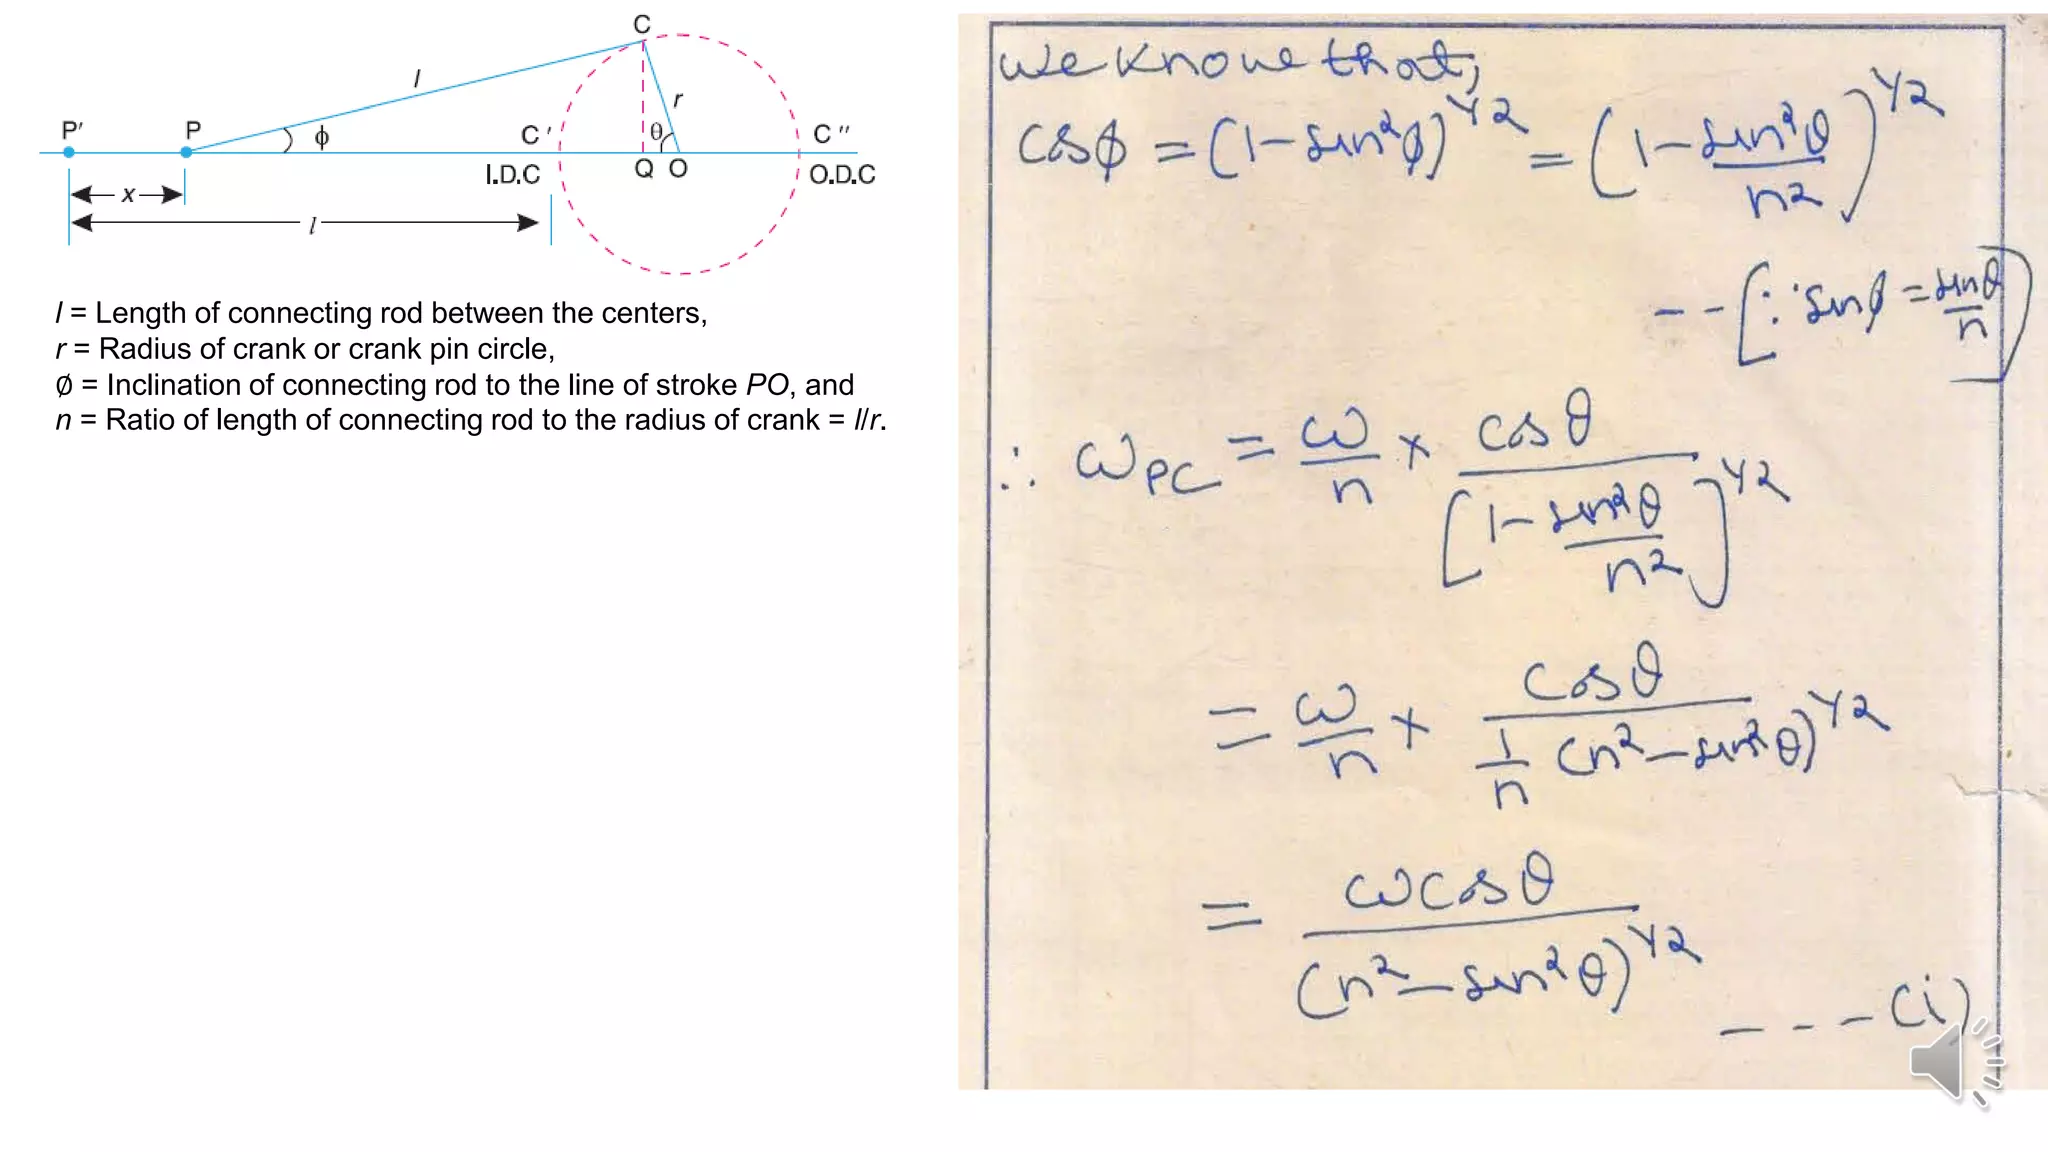 C
l
r
P' P ϕ C' θ C"
I.D.C Q O O.D.C
x
l
l = Length of connecting rod between the centers,
r = Radius of crank or crank pin circle,
∅ = Inclination of connecting rod to the line of stroke PO, and
n = Ratio of length of connecting rod to the radius of crank = l/r.
We know that,
cosϕ = (1 - sin²ϕ)^1/2 = (1 - sin²θ/n²)^1/2
--[∵ sinϕ = sinθ/n]
∴ ωPC = ω/n × cosθ/[1 - sin²θ/n²]^1/2
= ω/n × cosθ/(1/n (n² - sin²θ)^1/2)
= ωcosθ/(n² - sin²θ)^1/2 ---(i)